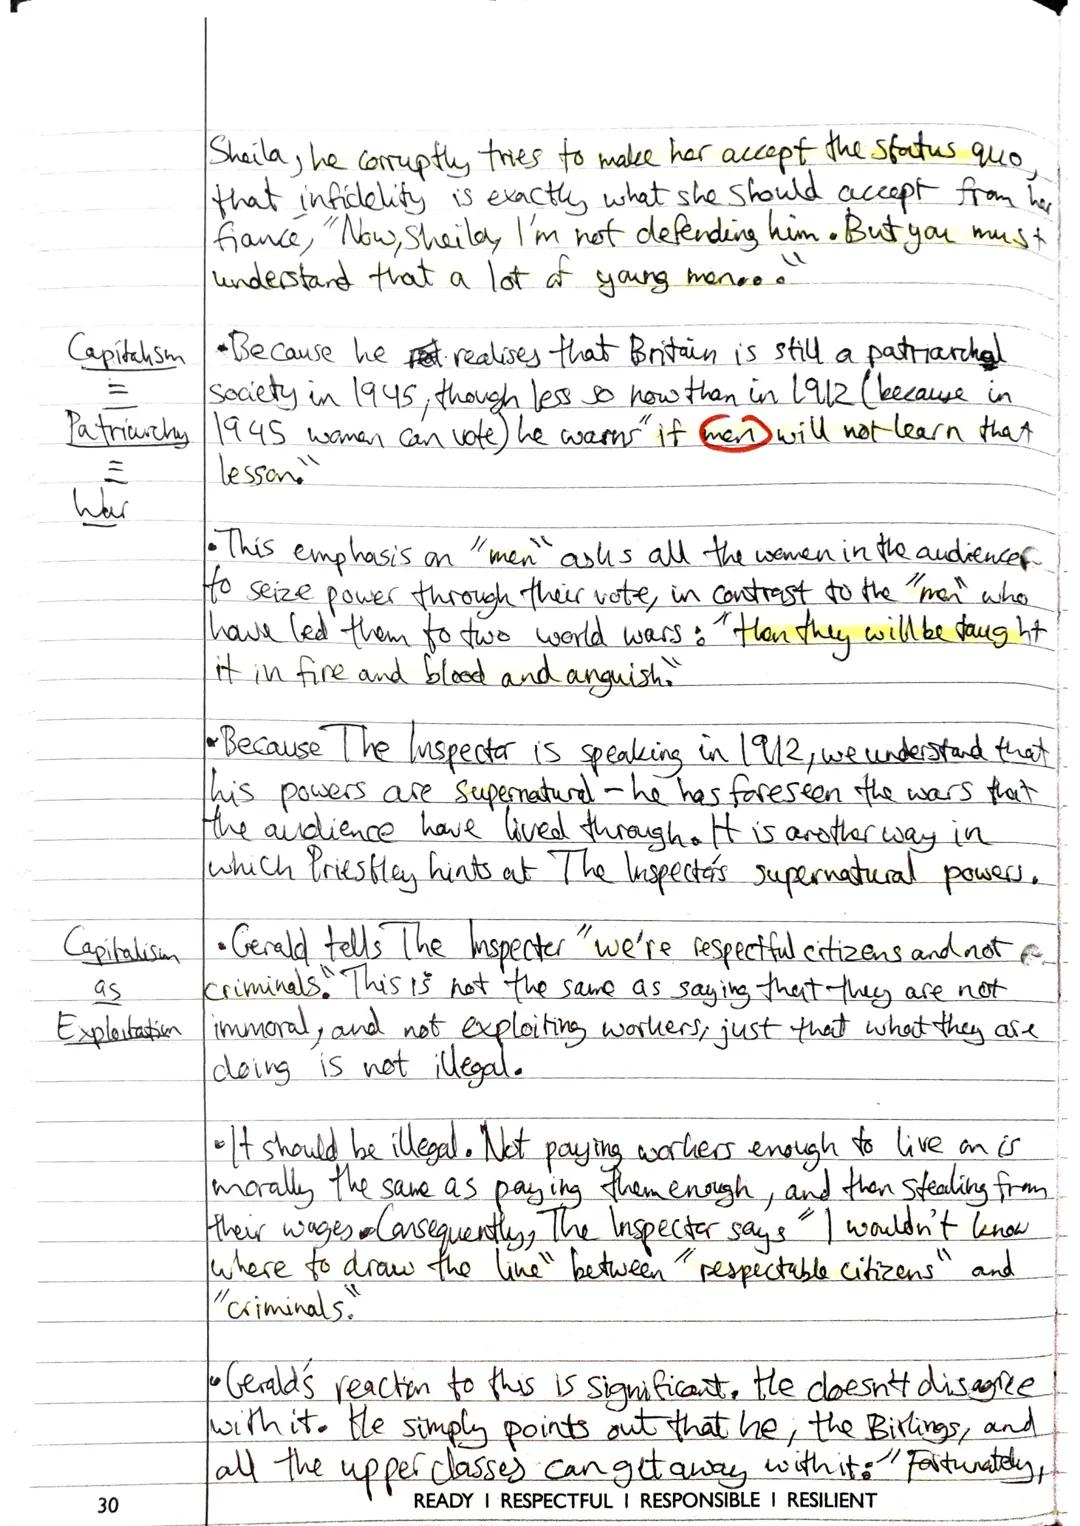 Sheila, he corruptly tries to make her accept the status quo,
that infidelity is exactly what she should accept from her
fiancé, "Now, Sheila, I'm not defending him. But you must
understand that a lot of young men..."
Capitalism
=
Patriarchy
=
War
•Because he realises that Britain is still a patriarchal
society in 1945, though less so now than in 1912 (because in
1945 women can vote) he warns "if men will not learn that
lesson."
•This emphasis on "men" asks all the women in the audience
to seize power through their vote, in contrast to the "men" who
have led them to two world wars: "then they will be taught
it in fire and blood and anguish."
•Because The Inspector is speaking in 1912, we understand that
his powers are supernatural - he has foreseen the wars that
the audience have lived through. It is another way in
which Priestley hints at The Inspector's supernatural powers.
Capitalism
as
Exploitation
•Gerald tells The Inspector "we're respectful citizens and not
criminals." This is not the same as saying that they are not
immoral, and not exploiting workers, just that what they are
doing is not illegal.
•It should be illegal. Not paying workers enough to live on is
morally the same as paying them enough, and then stealing from
their wages. Consequently, The Inspector says "I wouldn't know
where to draw the line" between "respectable citizens" and
"criminals."
•Gerald's reaction to this is significant. He doesn't disagree
with it. He simply points out that he, the Birlings, and
all the upper classes can get away with it: "Fortunately,
30
READY | RESPECTFUL | RESPONSIBLE | RESILIENT